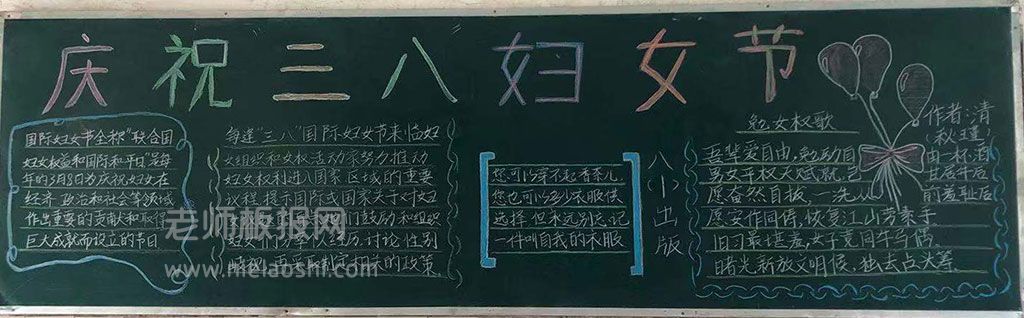 庆祝三八妇女节
国际妇女节全称"联合国
妇女权益和国际和平日"是每
年的3月8日为庆祝妇女在
经济 政治和社会等领域
作出重要的贡献和取得
巨大成就而设立的节日
每逢"三八"国际妇女节来临妇
女组织和女权活动家努力推动
妇女权利进入国家区域的重要
议程 提很国际或国家关于对妇
们鼓励和组织
妇女们分享 经历 讨论 性别
相关的政策
老师板报网
www.meilaoshi.com
您可以穿不起香奈儿
您也可以多少衣服供
选择 但永远别忘记
一件叫自我的衣服
八(1)出版
勉女权歌
作者:清
秋瑾
吾辈爱自由,勉励自
由一杯酒
男女平权天赋就,岂
甘居牛后
愿奋然自拔,一洗从
前羞耻后
愿安作同俦,恢复江山劳素手
旧习最堪羞,女子竟同牛马偶
曙光新放文明候,独去占头筹